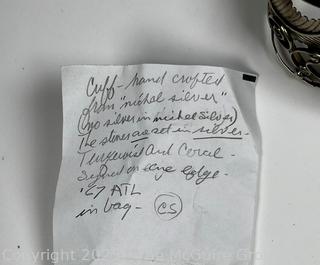 Cuff - hand crafted
from "nickal silver"
(no silver in nickal silver)
the stones are set in silver.
Turquoise and Coral -
Signed on the edge -
'67 ATL
in bag - CS
Copyright 202 The McGuire Gro